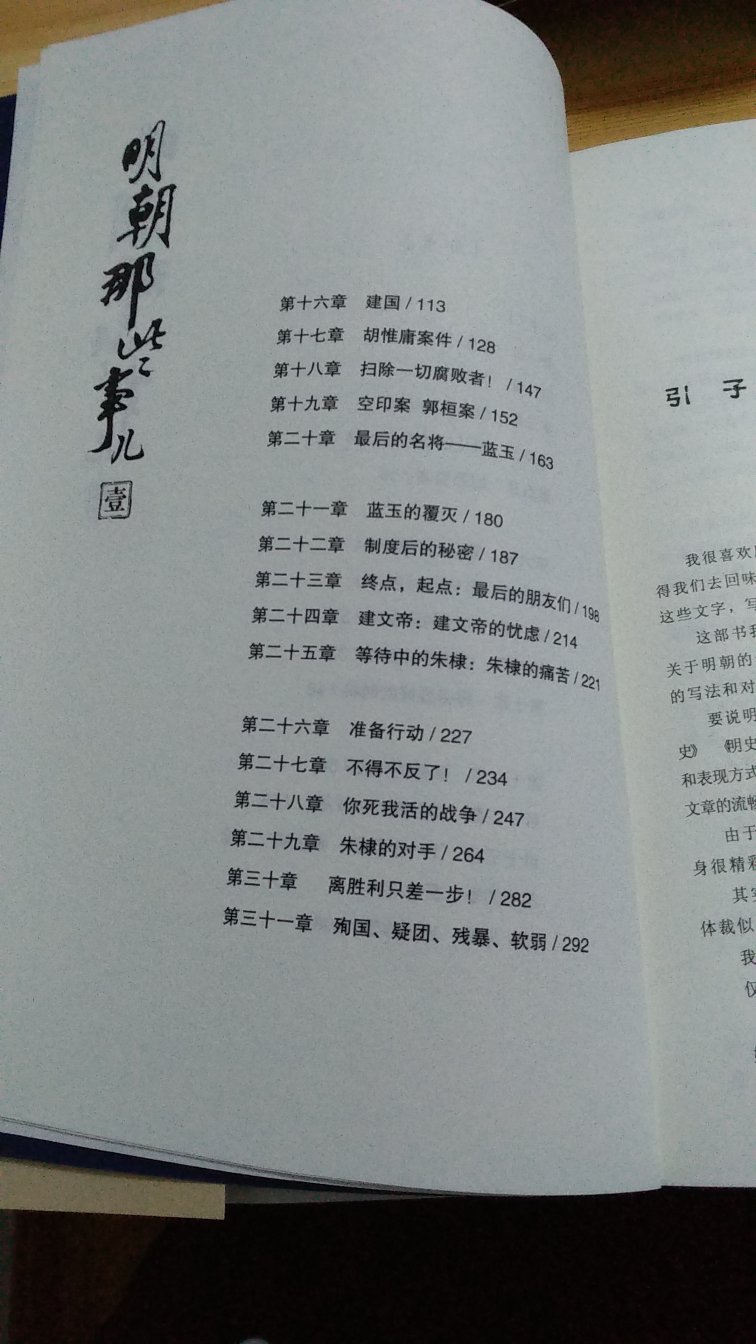 明朝那些事儿
壹
第十六章 建国 / 113
第十七章 胡惟庸案件 / 128
第十八章 扫除一切腐败者！ / 147
第十九章 空印案 郭桓案 / 152
第二十章 最后的名将——蓝玉 / 163
第二十一章 蓝玉的覆灭 / 180
第二十二章 制度后的秘密 / 187
第二十三章 终点，起点：最后的朋友们 / 198
第二十四章 建文帝：建文帝的忧虑 / 214
第二十五章 等待中的朱棣：朱棣的痛苦 / 221
第二十六章 准备行动 / 227
第二十七章 不得不反了！ / 234
第二十八章 你死我活的战争 / 247
第二十九章 朱棣的对手 / 264
第三十章 离胜利只差一步！ / 282
第三十一章 殉国、疑团、残暴、软弱 / 292
引 子
我很喜欢
得我们去回味
这些文字，写
这部书我
关于明朝的
的写法和对
要说明
史》《明史
和表现方式
文章的流畅
由于
身很精彩
其实
体裁似
我
仅